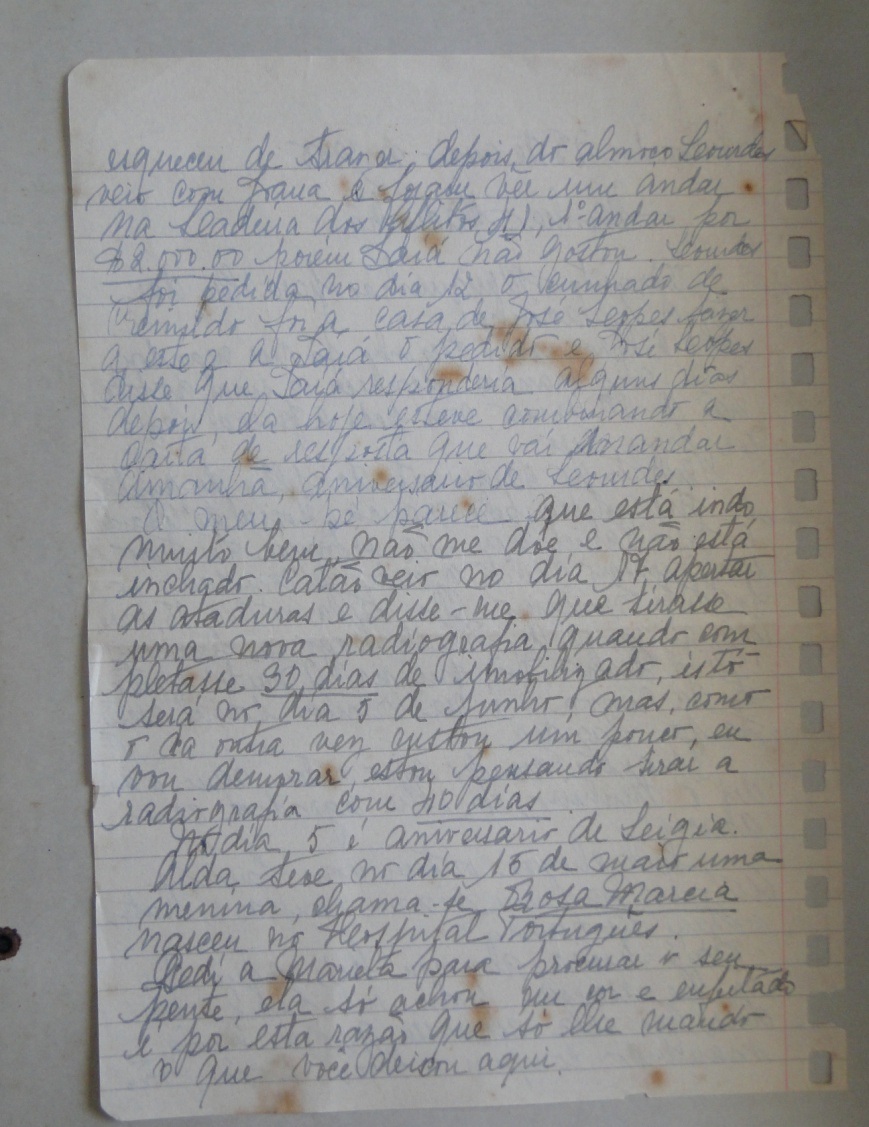 esqueceu de trazer, depois do almoço Lourdes
veio com Joana e foram vêr um andar
na Ladeira dos 41), 1º andar por
$2.000.00 porém Iaiá não gostou. Lourdes
foi pedida no dia 12 o cunhado de
foi a casa de José Lopes fazer
a este e a Iaiá o pedido e José Lopes
disse que Iaiá responderia alguns dias
depois, ela hoje esteve combinando a
carta de resposta que vai mandar
amanhã, aniversario de Lourdes.
O meu pé parece que está indo
muito bem, não me dóe e não está
inchado. Catão veio no dia 17 apertar
as ataduras e disse-me que tirasse
uma nova radiografia quando com
pletasse 30 dias de imobilizado, isto
será no dia 5 de Junho, mas, como
o da outra vez custou um pouco, eu
vou demorar, estou pensando tirar a
radiografia com 40 dias
No dia 5 é aniversario de Leigia.
Alda teve no dia 15 de maio uma
menina, chama-se Rosa Marcia
nasceu no Hospital Português.
Pedi a para procurar o seu
pente, ela só achou um cor e enfeitado
e por esta razão que só lhe mando
o que você deixou aqui.